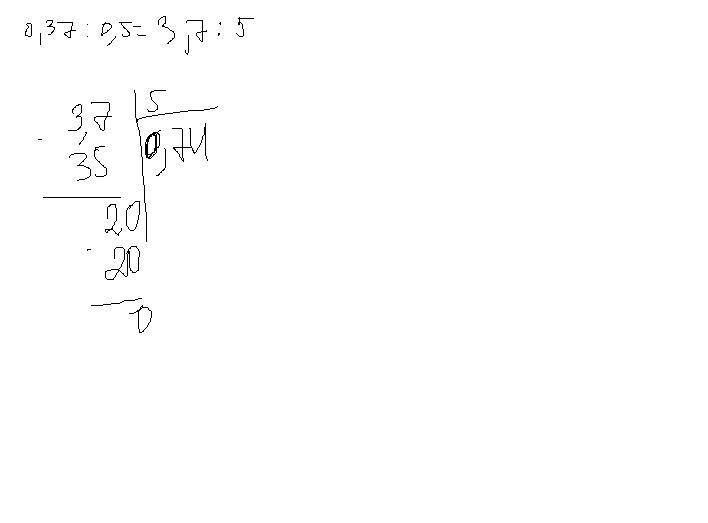 0,37 : 0,5 = 3,7 : 5
3,7 5
- 0,74
35
2,0
- 20
0